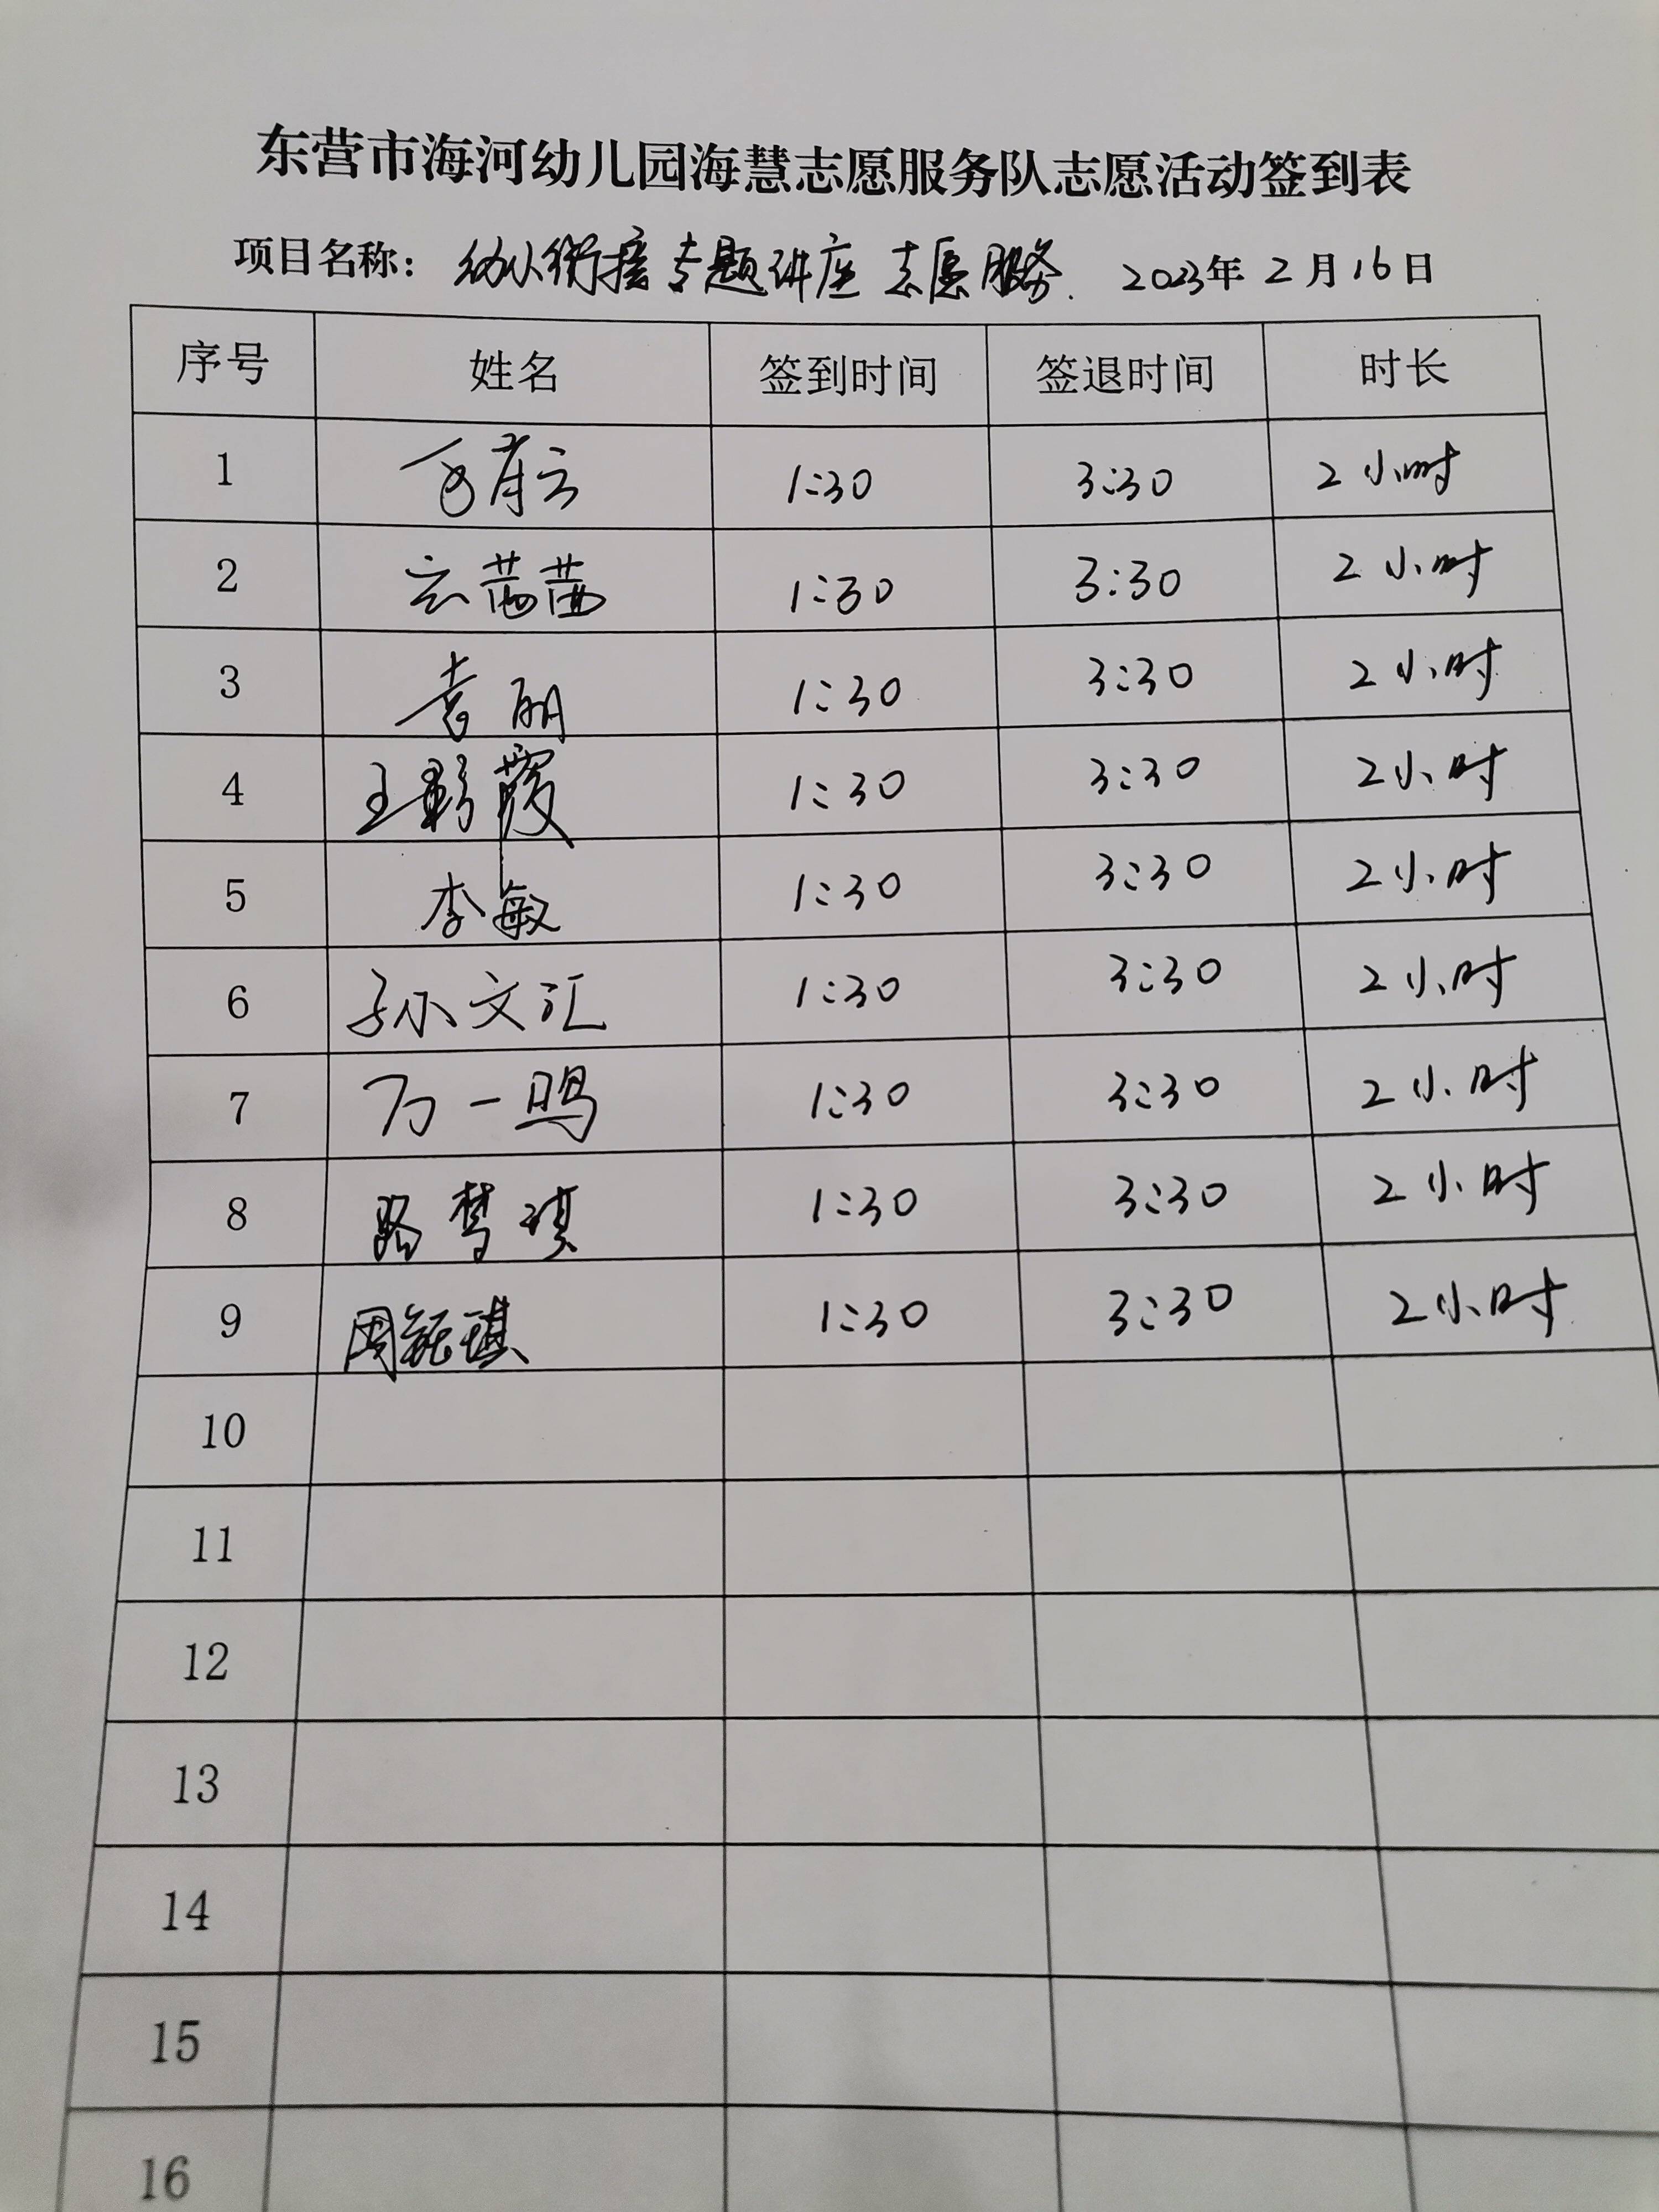 东营市海河幼儿园海慧志愿服务队志愿活动签到表
项目名称：幼小衔接专题讲座志愿服务. 2023年2月16日
序号 姓名 签到时间 签退时间 时长
1 1:30 3:30 2小时
2 云茜茜 1:30 3:30 2小时
3 袁丽 1:30 3:30 2小时
4 王彩霞 1:30 3:30 2小时
5 李敏 1:30 3:30 2小时
6 孙文汇 1:30 3:30 2小时
7 万一鸣 1:30 3:30 2小时
8 路梦琪 1:30 3:30 2小时
9 1:30 3:30 2小时
10
11
12
13
14
15
16